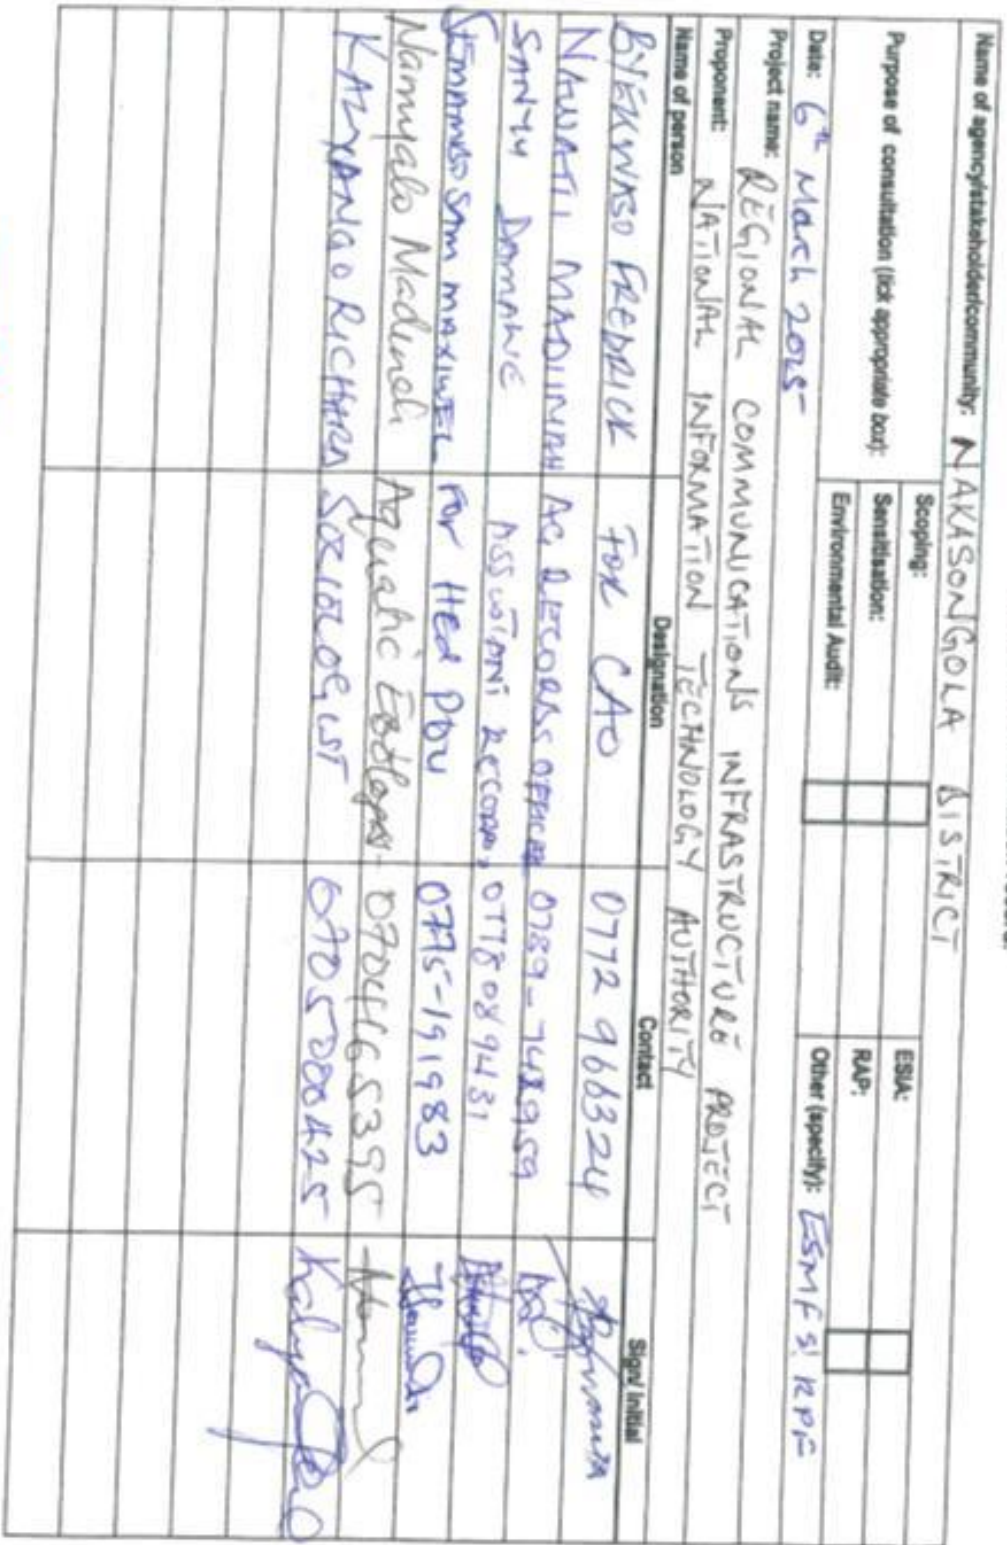 Name of agency/stakeholder/community: NAKASONGOLA DISTRICT
Purpose of consultation (tick appropriate box):
Scoping:
ESIA:
Sensitisation:
RAP:
Environmental Audit:
Other (specify): ESMF & RPF
Date: 6th March 2025
Project name: REGIONAL COMMUNICATIONS INFRASTRUCTURE PROJECT
Proponent: NATIONAL INFORMATION TECHNOLOGY AUTHORITY
Name of person Designation Contact Sign/ Initial
BYEKWASO FREDRICK FOR CAO 0772 966324
NAWATI MADINAH AG RECORDS OFFICER 0789-748959
SANYU DAMALIE ASSISTANT RECORDS, 0778089431
SEMAMBO SAM MAXIWEL FOR Hed PDU 0775-191983
Namyalo Madinah Aquatic Ecologist- 0704665395
KALYANGO RICHARD SOCIOLOGIST 0705000425 Kalyango